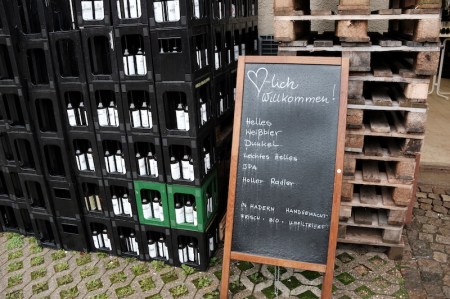 ♡-lich
Willkommen!
Helles
Weißbier
Dunkel
Leichtes Helles
IPA
Heller Radler
IN HADERN HANDGEMACHT
FRISCH · BIO · UNFILTRIERT